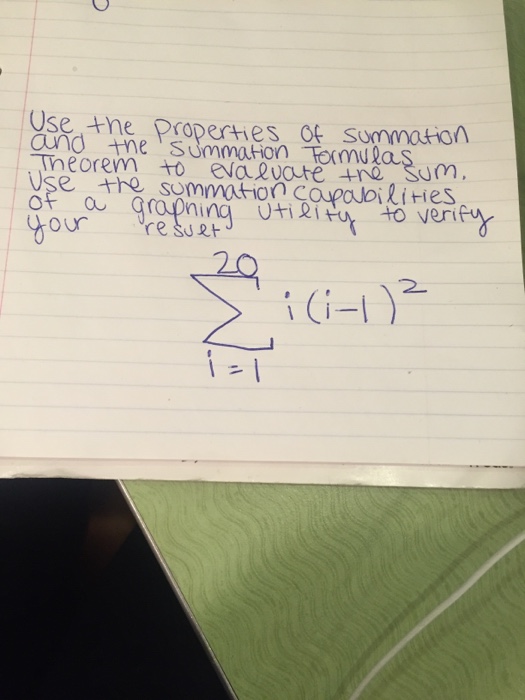 Use the properties of summation
and the summation Formulas
Theorem to evaluate the sum.
Use the summation capabilities
of a graphing utility to verify
your result
20
∑ i(i-1)²
i=1